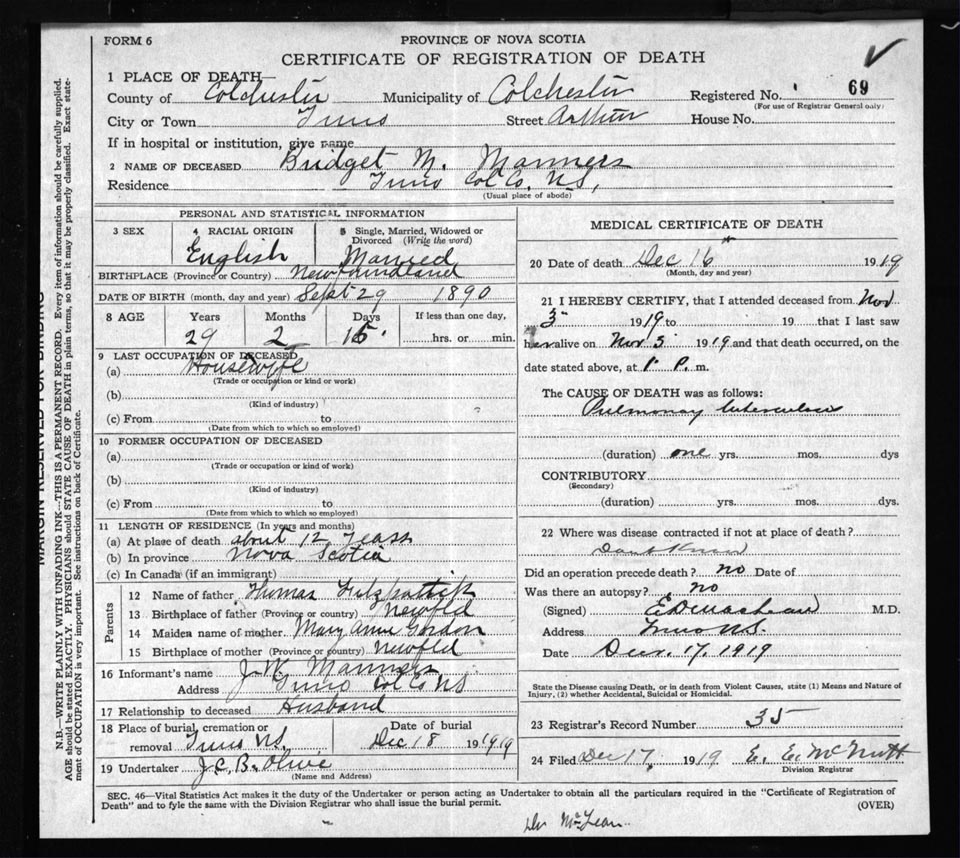 FORM 6
PROVINCE OF NOVA SCOTIA
CERTIFICATE OF REGISTRATION OF DEATH
1 PLACE OF DEATH—
County of Colchester Municipality of Colchester Registered No. 69
(For use of Registrar General only)
City or Town Truro Street Arthur House No.
If in hospital or institution, give name
2 NAME OF DECEASED Bridget M. Manners
Residence Truro Col Co. N.S,
(Usual place of abode)
PERSONAL AND STATISTICAL INFORMATION
3 SEX 4 RACIAL ORIGIN 5 Single, Married, Widowed or
Divorced (Write the word)
English Married
BIRTHPLACE (Province or Country) Newfoundland
DATE OF BIRTH (month, day and year) Sept 29 1890
8 AGE Years Months Days If less than one day,
29 2 15 hrs. or min.
9 LAST OCCUPATION OF DECEASED
(a) Housewife
(Trade or occupation or kind or work)
(b)
(Kind of industry)
(c) From to
(Date from which to which so employed)
10 FORMER OCCUPATION OF DECEASED
(a)
(Trade or occupation or kind of work)
(b)
(Kind of industry)
(c) From to
(Date from which to which so employed)
11 LENGTH OF RESIDENCE (In years and months)
(a) At place of death about 12 Years
(b) In province Nova Scotia
(c) In Canada (if an immigrant)
Parents
12 Name of father Thomas Fitzpatrick
13 Birthplace of father (Province or country) Newfld
14 Maiden name of mother Mary Ann Gordon
15 Birthplace of mother (Province or country) Newfld
16 Informant's name J. W. Manners
Address Truro Col Co NS
17 Relationship to deceased Husband
18 Place of burial, cremation or Date of burial
removal Truro NS Dec 18 1919
19 Undertaker J. C. B. Olive
(Name and Address)
MEDICAL CERTIFICATE OF DEATH
20 Date of death Dec 16 1919
(Month, day and year)
21 I HEREBY CERTIFY, that I attended deceased from Nov
3 1919 to 19 that I last saw
her alive on Nov 3 1919 and that death occurred, on the
date stated above, at 1 P. m.
The CAUSE OF DEATH was as follows:
Pulmonary tuberculosis
(duration) one yrs. mos. dys
CONTRIBUTORY
(Secondary)
(duration) yrs. mos. dys.
22 Where was disease contracted if not at place of death?
Dont Know
Did an operation precede death? no Date of
Was there an autopsy? no
(Signed) M.D.
Address Truro N.S.
Date Dec. 17, 1919
State the Disease causing Death, or in death from Violent Causes, state (1) Means and Nature of
Injury, (2) whether Accidental, Suicidal or Homicidal.
23 Registrar's Record Number 35
24 Filed Dec 17, 1919 E. E. McNutt
Division Registrar
SEC. 46—Vital Statistics Act makes it the duty of the Undertaker or person acting as Undertaker to obtain all the particulars required in the "Certificate of Registration of
Death" and to fyle the same with the Division Registrar who shall issue the burial permit. (OVER)
Dr McLean
MARGIN RESERVED FOR BINDING
N.B.—WRITE PLAINLY WITH UNFADING INK—THIS IS A PERMANENT RECORD. Every item of information should be carefully supplied.
AGE should be stated EXACTLY. PHYSICIANS should STATE CAUSE OF DEATH in plain terms, so that it may be properly classified. Exact state-
ment of OCCUPATION is very important. See instructions on back of Certificate.